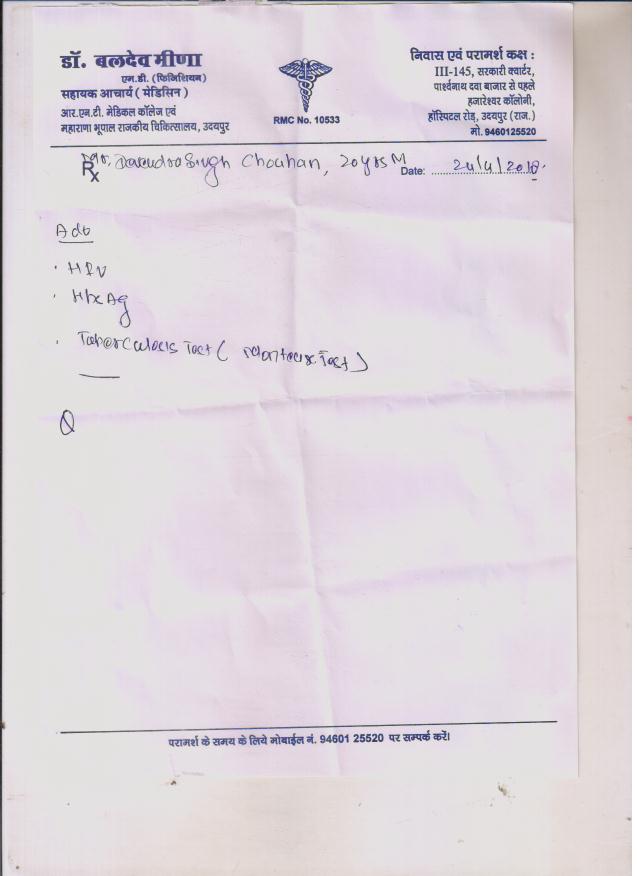 डॉ. बलदेव मीणा
एम.डी. (फिजिशियन)
सहायक आचार्य ( मेडिसिन )
आर.एन.टी. मेडिकल कॉलेज एवं
महाराणा भूपाल राजकीय चिकित्सालय, उदयपुर
RMC No. 10533
निवास एवं परामर्श कक्ष :
III-145, सरकारी क्वार्टर,
पार्श्वनाथ दवा बाजार से पहले
हजारेश्वर कॉलोनी,
हॉस्पिटल रोड़, उदयपुर (राज.)
मो. 9460125520
Singh Chouhan, 20yrs M
Rx
Date: 24/4/2018
Adv
HIV
HbsAg
Tuberculosis Test ( Mantoux Test )
परामर्श के समय के लिये मोबाईल नं. 94601 25520 पर सम्पर्क करें।